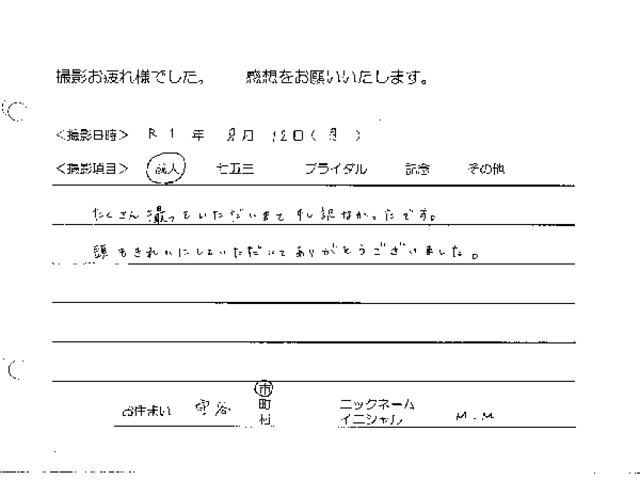 撮影お疲れ様でした。 感想をお願いいたします。
＜撮影日時＞ R1 年 8月 12日(月)
＜撮影項目＞ 成人 七五三 ブライダル 記念 その他
たくさん撮っていただいまて申し訳なかったです。
頭もきれいにしていただいてありがとうございました。
お住まい 守谷 市 町 村 ニックネーム イニシャル M.M